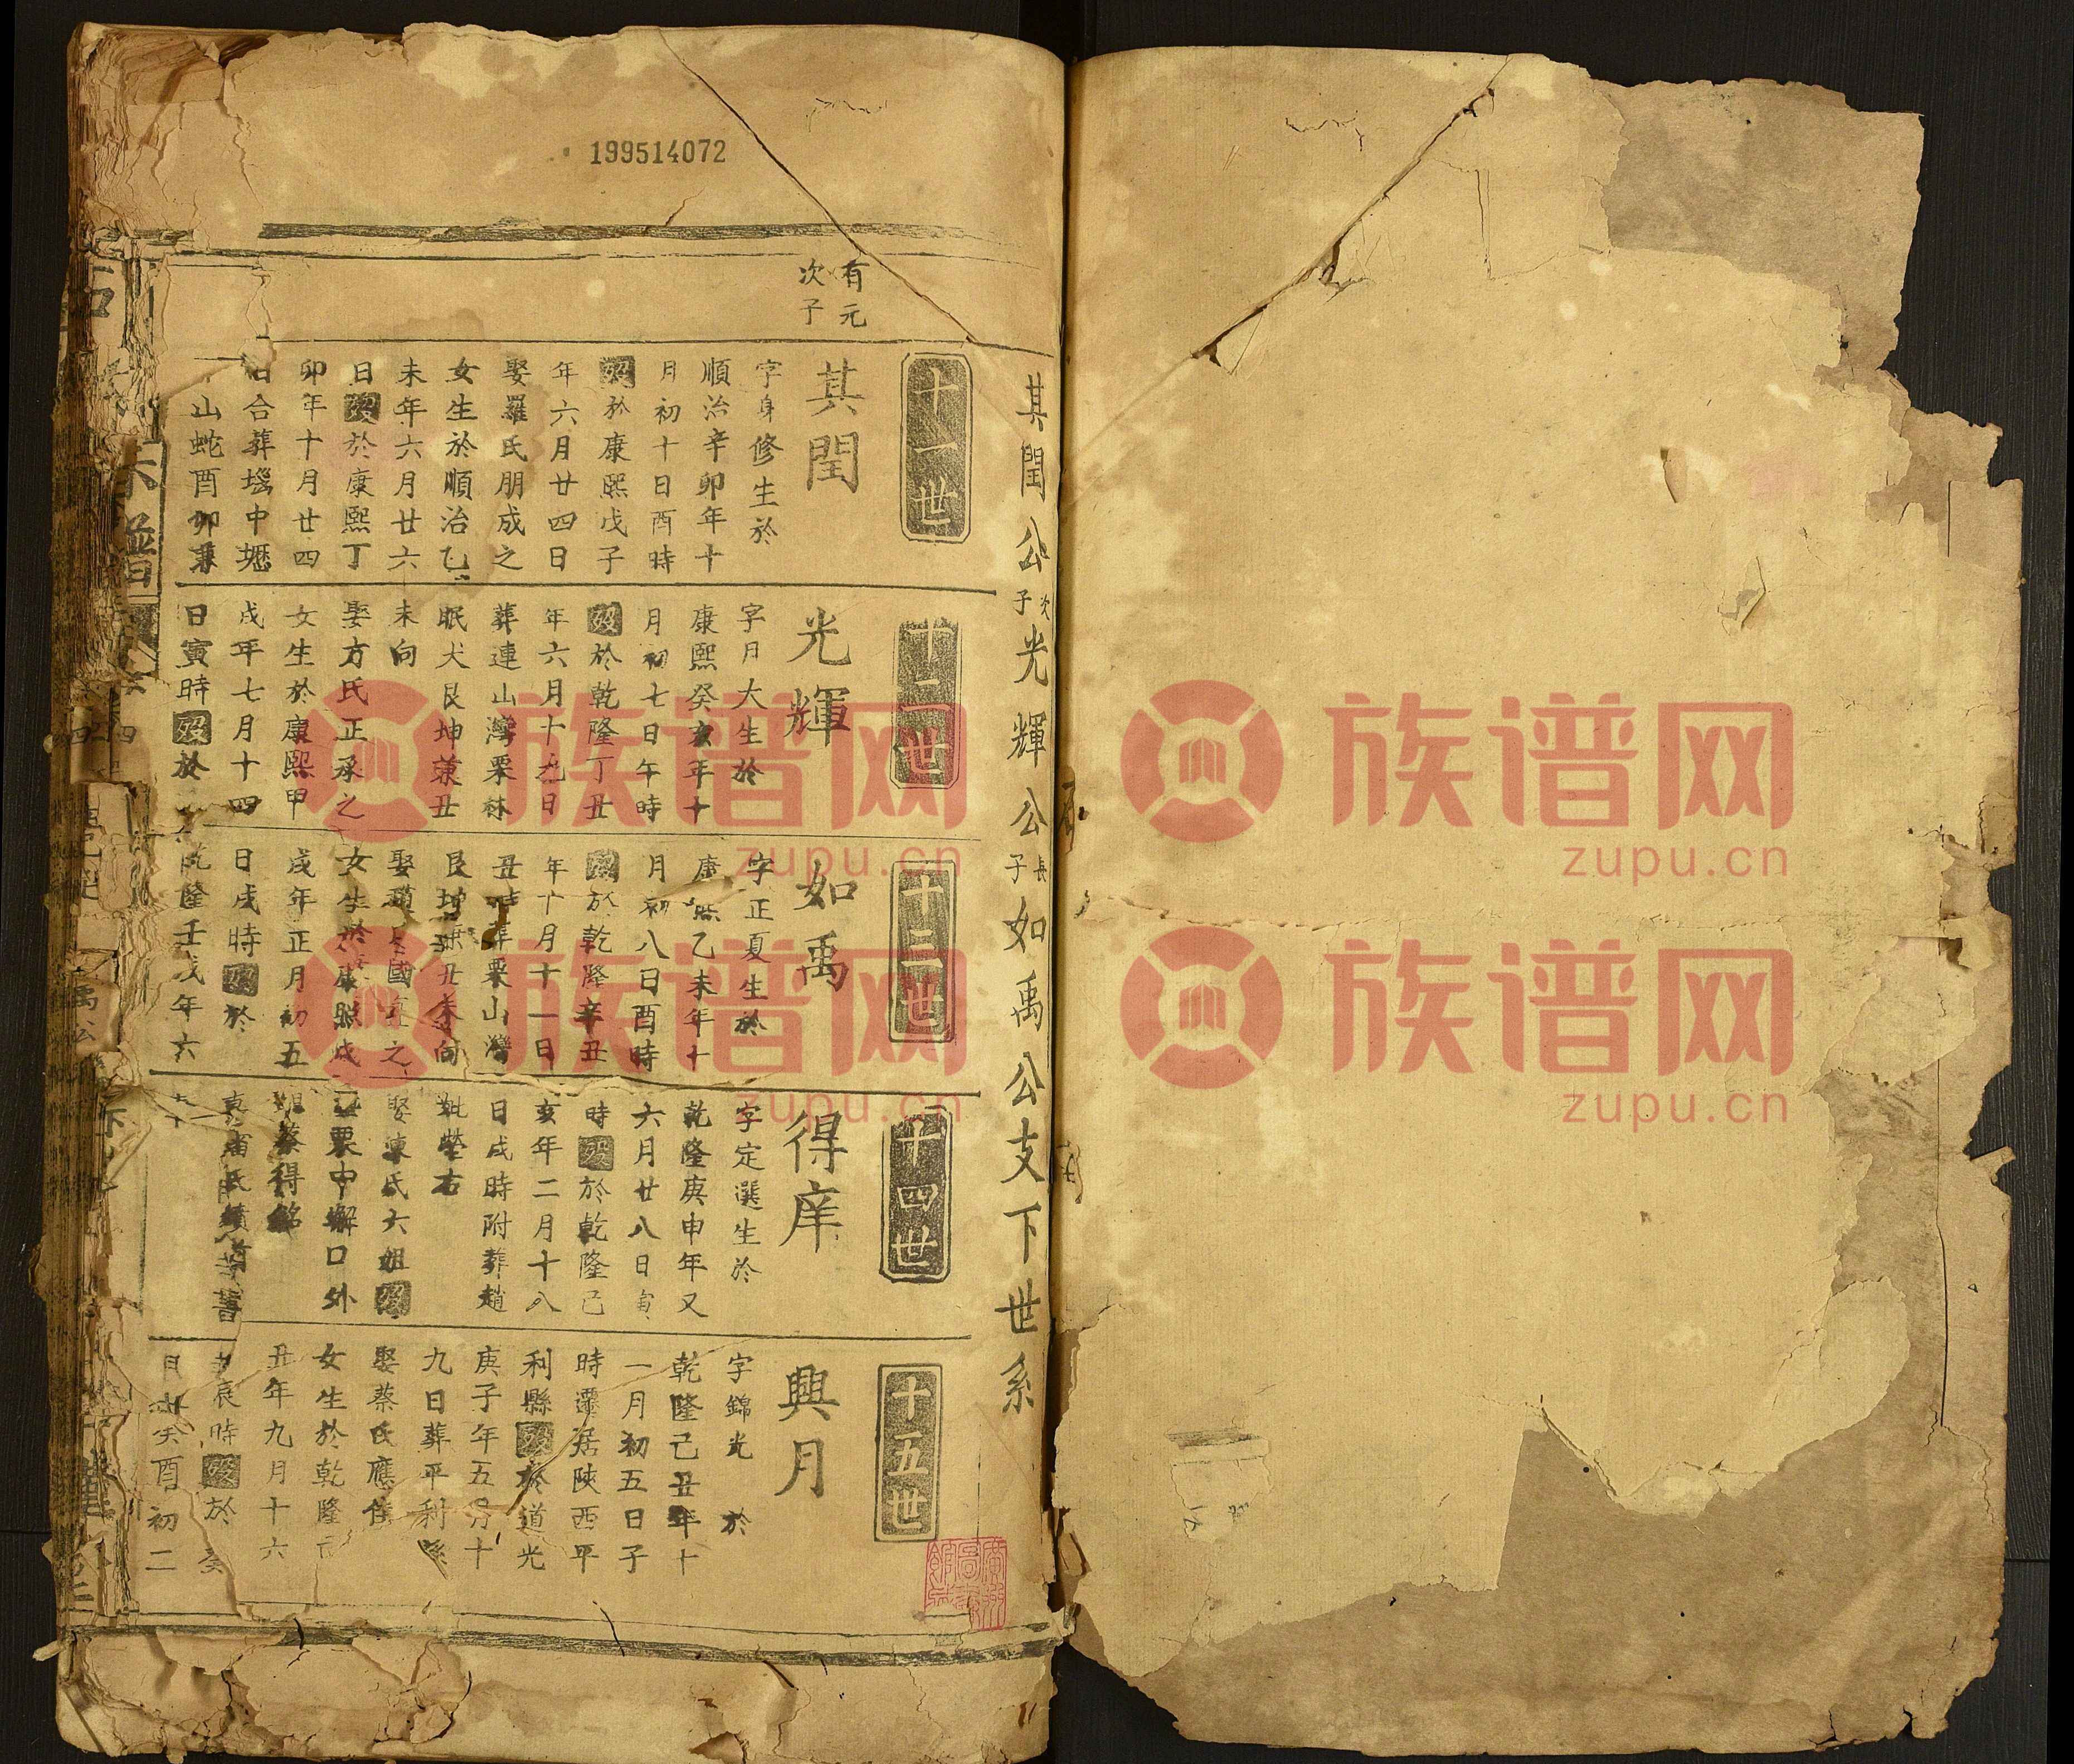 199514072
其閏公次子光輝公長子如禹公支下世系
有元
次子
十一世
其閏
字身修生於
順治辛卯年十
月初十日酉時
歿於康熙戊子
年六月廿四日
娶羅氏朋成之
女生於順治乙
未年六月廿六
日歿於康熙丁
卯年十月廿四
合葬塅中壢
山蛇酉卯兼
十二世
光輝
字月大生於
康熙癸亥年十
月初七日午時
歿於乾隆丁丑
年六月十九日
葬連山灣栗林
眠犬艮坤兼丑
未向
娶方氏正承之
女生於康熙甲
戌年七月十四
日寅時歿於
十三世
如禹
字正夏生於
康熙乙未年十
月初八日酉時
歿於乾隆辛丑
年十月十一日
丑時葬栗山灣
艮坤兼丑未向
娶國之
女生於康熙戊
戌年正月初五
日戌時歿於
乾隆壬戌年六
十四世
得庠
字定選生於
乾隆庚申年又
六月廿八日寅
時歿於乾隆己
亥年二月十八
日戌時附葬趙
妣塋右
娶陳氏六姐歿
栗中懈口外
蔡得銘
氏
十五世
興月
字錦光 於
乾隆己丑年十
一月初五日子
時遷居陝西平
利縣歿於道光
庚子年五月十
九日葬平利縣
娶蔡氏應佳
女生於乾隆
丑年九月十六
辰時歿於
月癸酉初二
族谱网
zupu.cn
族谱网
zupu.cn
族谱网
zupu.cn
族谱网
zupu.cn